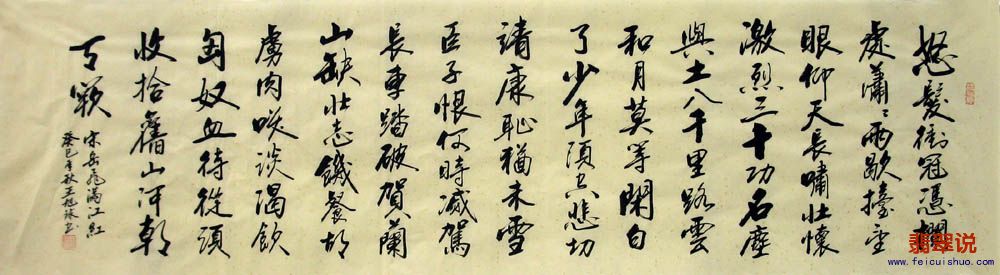 怒髮衝冠憑欄
處瀟瀟雨歇擡望
眼仰天長嘯壯懷
激烈三十功名塵
與土八千里路雲
和月莫等閑白
了少年頭空悲切
靖康恥猶未雪
臣子恨何時滅駕
長車踏破賀蘭
山缺壯志饑餐胡
虜肉咲談渴飲
匈奴血待從頭
收拾舊山河朝
天闕
宋岳飛滿江紅
癸巳年秋王旭
翡翠说
www.feicuishuo.com